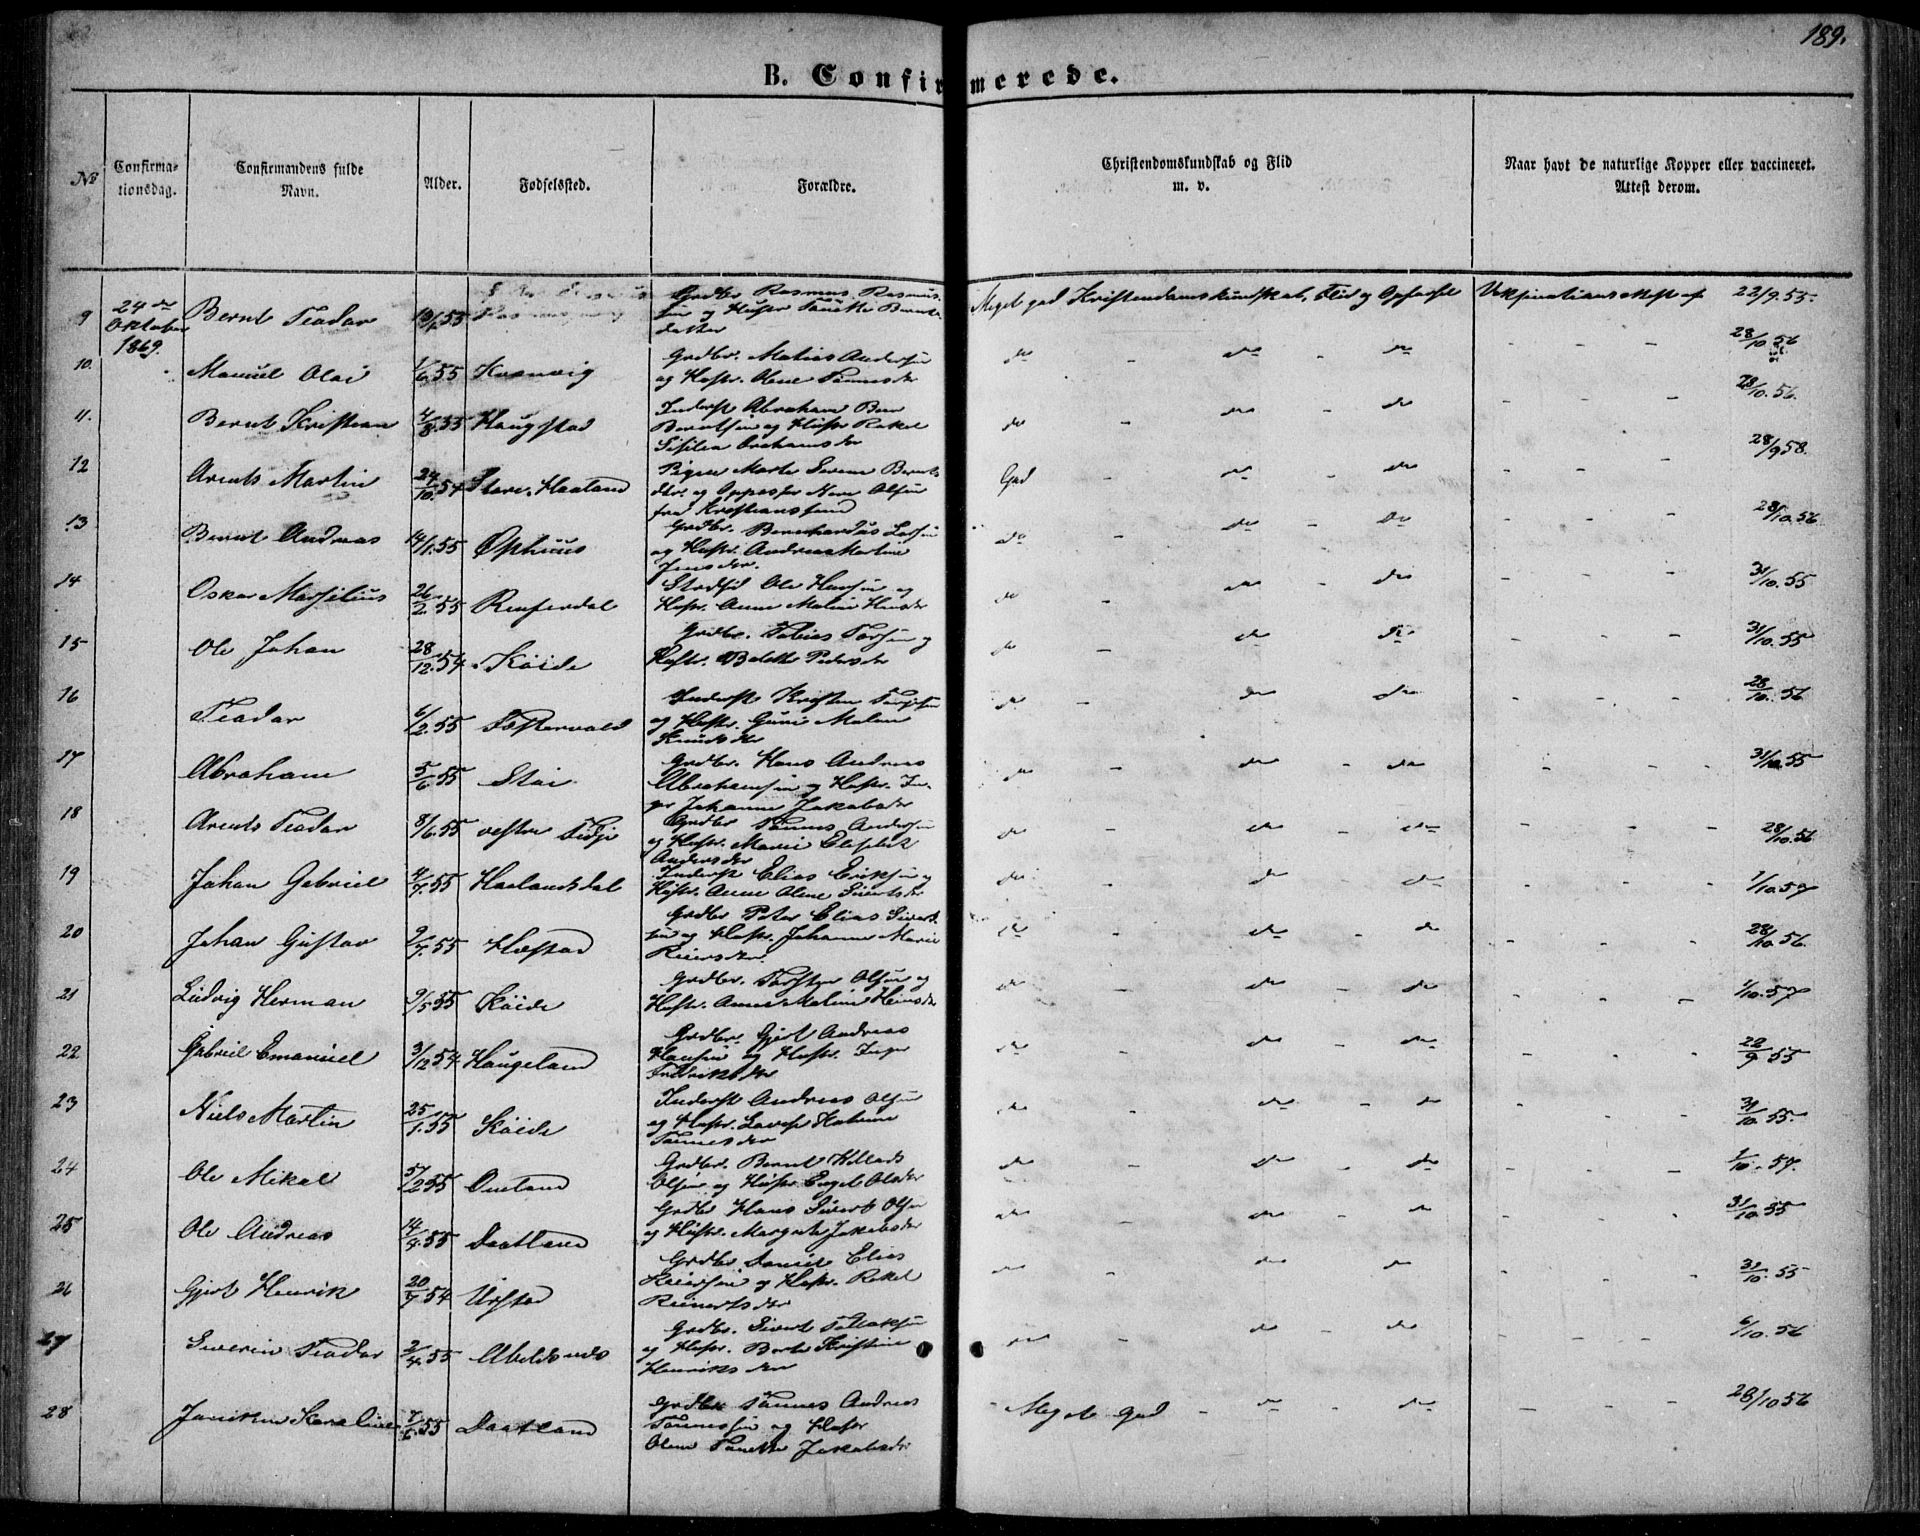 189.
B. Confirmerede.
No
Confirma-
tionsdag.
Confirmandens fulde
Navn.
Alder.
Fødselssted.
Forældre.
Christendomskundskab og Flid
m. v.
Naar havt de naturlige Kopper eller vaccineret.
Attest derom.
24de
Oktober
1869.
9 Bernt Teodor Grdbr Rasmus Rasmus-
sen og Hustr Tonette Bernts-
datter
Meget god Kristendomskundskab, Flid og Opførsel Vaksinationsattest af 22/9.55
10. Manuel Olai 1/6.55 Kvanvig Grdbr. Matias Andersen
og Hustr. Olene Tønnesdtr
do - do - do - - - 28/10 56
11. Bernt Kristian 4/8.55 Haugstad Inderst Abraham Bern
Berntsen og Hustr Rakel
do - do - do - - - 28/10.56.
12 Arents Martin 24/10.54 Store Haaland Pigen Marte Serene Bernts
dtr. og Oppasser Olsen
fra Kristianssund
God - do - do - - - 28/9 58.
13 Bernt Andreas 14/1.55 Øphuus Grdbr. Bernhardus Larsen
og Hustr. Andrea Martine
Jensdtr.
do - do - do - - - 28/10.56
14 Oskar Marselius 26/2.55 Refserdal Ole Hansen og
Hustr. Anne Maline Hansdtr
do - do - do - - - 31/10.55
15 Ole Johan 28/12.54 Køide Grdbr. Tobias Torsen og
Hustr. Bolette Pedersdtr
do - do - do - - - 31/10.55
16 Teodor 6/2.55 Inderst Kristen Terjesen
og Hustr. Guri Malene
Knudsdtr
do - do - do - - - 28/10.56
17 Abraham 5/6.55 Støi Grdbr. Hans Andreas
Abrahamsen og Hustr. In-
ger Johanne Jakobsdtr
do - do - do - - - 31/10.55
18 Arents Teodor 8/6.55 vestre Tidje Grdbr Tønnes Andersen
og Hustr. Marie Elisabet
Andersdtr
do - do - do - - - 28/10.56
19 Johan Gabriel 4/7.55 Haalandsdal Inderst Elias Eriksen og
Hustr. Anne Olene Sivertsdtr
do - do - do - - - 1/10.57
20 Johan Gustav 9/7.55 Hæstad Grdbr Peter Elias Sivert-
sen og Hustr. Johanne Marie
Reiersdtr.
do - do - do - - - 28/10 56.
21 Ludvig Herman 9/5 55 Køide Grdbr. Torsten Olsen og
Hustr. Anne Maline Hansdtr
do - do - do - - - 1/10.57
22 Gabriel Emanuel 3/12 54 Haugeland Grdbr. Gjert Andreas
Hansen og Hustr. Inger
Fredriksdtr
do - do - do - - - 22/9 55
23 Niels Martin 25/1.55 Køide Inderst Andreas Olsen
og Hustr. Lovise Katrine
Tønnesdtr
do - do - do - - - 31/10.55.
24 Ole Mikal 5/2 55 Oneland Grdbr. Bernt Villads
Olsen og Hustr Engel Olsdtr
do - do - do - - - 1/10.57.
25 Ole Andreas 14/4.55 Daatland Grdbr Hans Sivert Olsen
og Hustr. Margrete Jakobsdtr
do - do - do - - - 31/10.55
26 Gjert Henrik 20/7 54 Urstad Grdbr Daniel Elias
Reiersen og Hustr. Rakel
Reiertsdtr
do - do - do - - - 31/10.55
27 Severin Teodor 2/4.55 Abeldsnes Grdbr. Sivert Tollaksen
og Hustr. Berte Kristine
Henriksdtr
do - do - do - - - 6/10.56
28 Karoline 7/6 55 Daatland Grdbr Tønnes Andreas
Tønnessen og Hustr
Olene Tonette Jakobsdtr
Meget God - do - do - - - 28/10 56